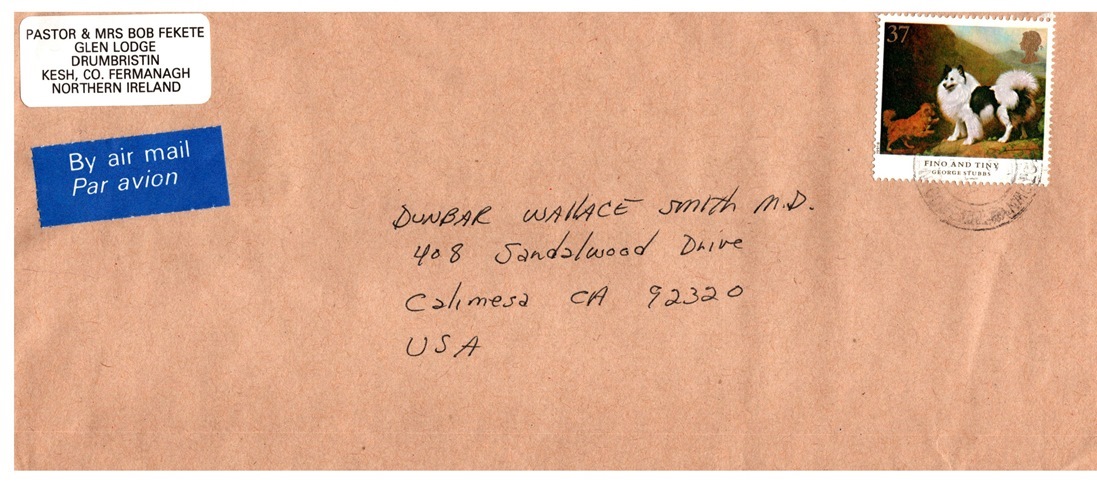 PASTOR & MRS BOB FEKETE
GLEN LODGE
DRUMBRISTIN
KESH, CO. FERMANAGH
NORTHERN IRELAND
By air mail
Par avion
37
FINO AND TINY
GEORGE STUBBS
DUNBAR WALLACE SMITH M.D.
408 Sandalwood Drive
Calimesa CA 92320
USA